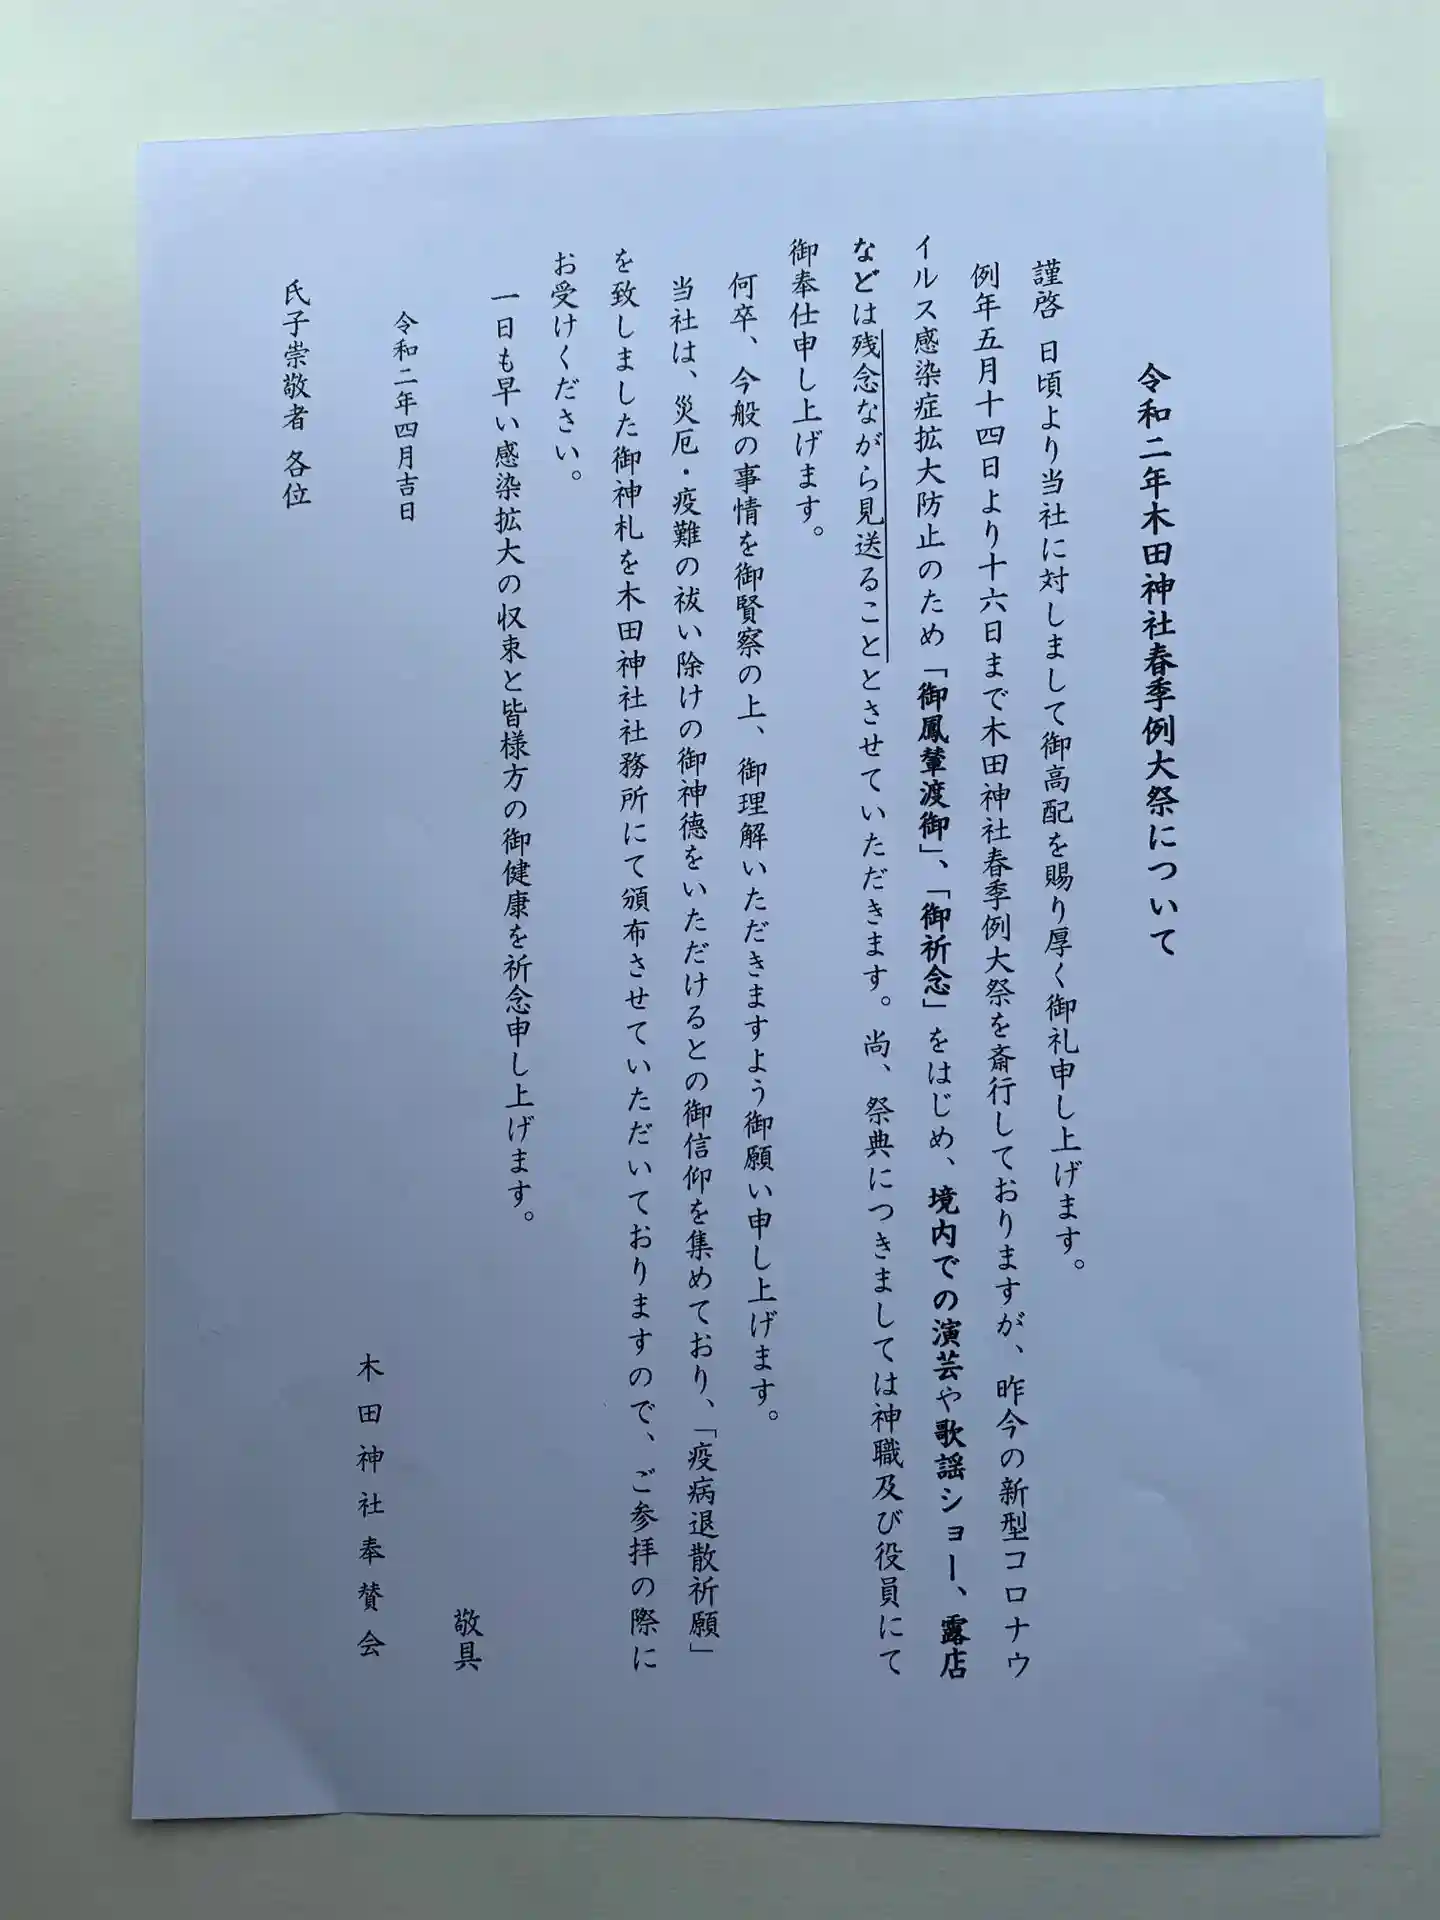 令和二年木田神社春季例大祭について
謹啓 日頃より当社に対しまして御高配を賜り厚く御礼申し上げます。
例年五月十四日より十六日まで木田神社春季例大祭を斎行しておりますが、昨今の新型コロナウ
イルス感染症拡大防止のため「御鳳輦渡御」、「御祈念」をはじめ、境内での演芸や歌謡ショー、露店
などは残念ながら見送ることとさせていただきます。尚、祭典につきましては神職及び役員にて
御奉仕申し上げます。
何卒、今般の事情を御賢察の上、御理解いただきますよう御願い申し上げます。
当社は、災厄・疫難の祓い除けの御神徳をいただけるとの御信仰を集めており、「疫病退散祈願」
を致しました御神札を木田神社社務所にて頒布させていただいておりますので、ご参拝の際に
お受けください。
一日も早い感染拡大の収束と皆様方の御健康を祈念申し上げます。
敬具
令和二年四月吉日
木田神社奉賛会
氏子崇敬者 各位